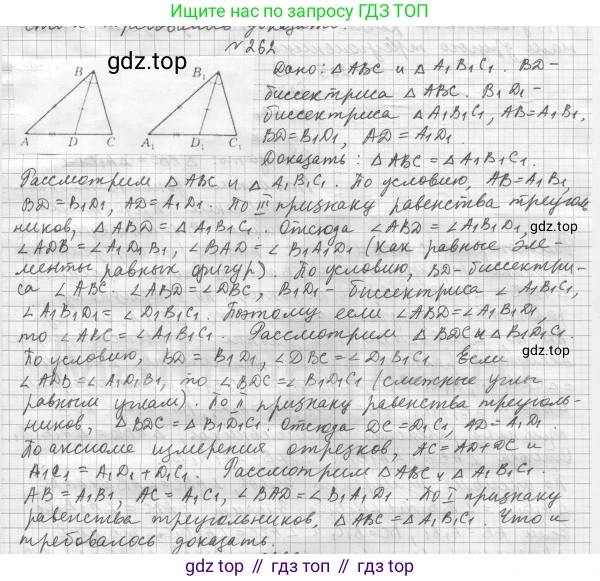 Ищите нас по запросу ГДЗ ТОП
gdz.top
что и требовалось доказать.
№262
B
B₁
A
D
C
A₁
D₁
C₁
Дано: △ABC и △A₁B₁C₁. BD-
биссектриса △ABC. B₁D₁-
биссектриса △A₁B₁C₁, AB=A₁B₁,
BD=B₁D₁, AD=A₁D₁
Доказать: △ABC=△A₁B₁C₁.
Рассмотрим △ABC и △A₁B₁C₁. По условию, AB=A₁B₁,
BD=B₁D₁, AD=A₁D₁. По III признаку равенства треуголь
ников, △ABD=△A₁B₁C₁. Отсюда ∠ABD=∠A₁B₁D₁,
∠ADB=∠A₁D₁B₁, ∠BAD=∠B₁A₁D₁ (как равные эле-
менты равных фигур). По условию, BD-биссектри-
са ∠ABC. ∠ABD=∠DBC, B₁D₁- биссектриса ∠A₁B₁C₁,
∠A₁B₁D₁=∠D₁B₁C₁. Поэтому если ∠ABD=∠A₁B₁D₁,
то ∠ABC=∠A₁B₁C₁. Рассмотрим △BDC и △B₁D₁C₁.
По условию, BD=B₁D₁, ∠DBC=∠D₁B₁C₁. Если
∠ADB=∠A₁D₁B₁, то ∠BDC=∠B₁D₁C₁ (смежные углы
равным углам). По II признаку равенства треуголь-
ников, △BDC=△B₁D₁C₁. Отсюда DC=D₁C₁, AD=A₁D₁.
По аксиоме измерения отрезков, AC=AD+DC и
A₁C₁=A₁D₁+D₁C₁. Рассмотрим △ABC и △A₁B₁C₁.
AB=A₁B₁, AC=A₁C₁, ∠BAD=∠B₁A₁D₁. По I признаку
равенства треугольников, △ABC=△A₁B₁C₁. Что и
требовалось доказать.
gdz.top
gdz.top
gdz.top
gdz.top